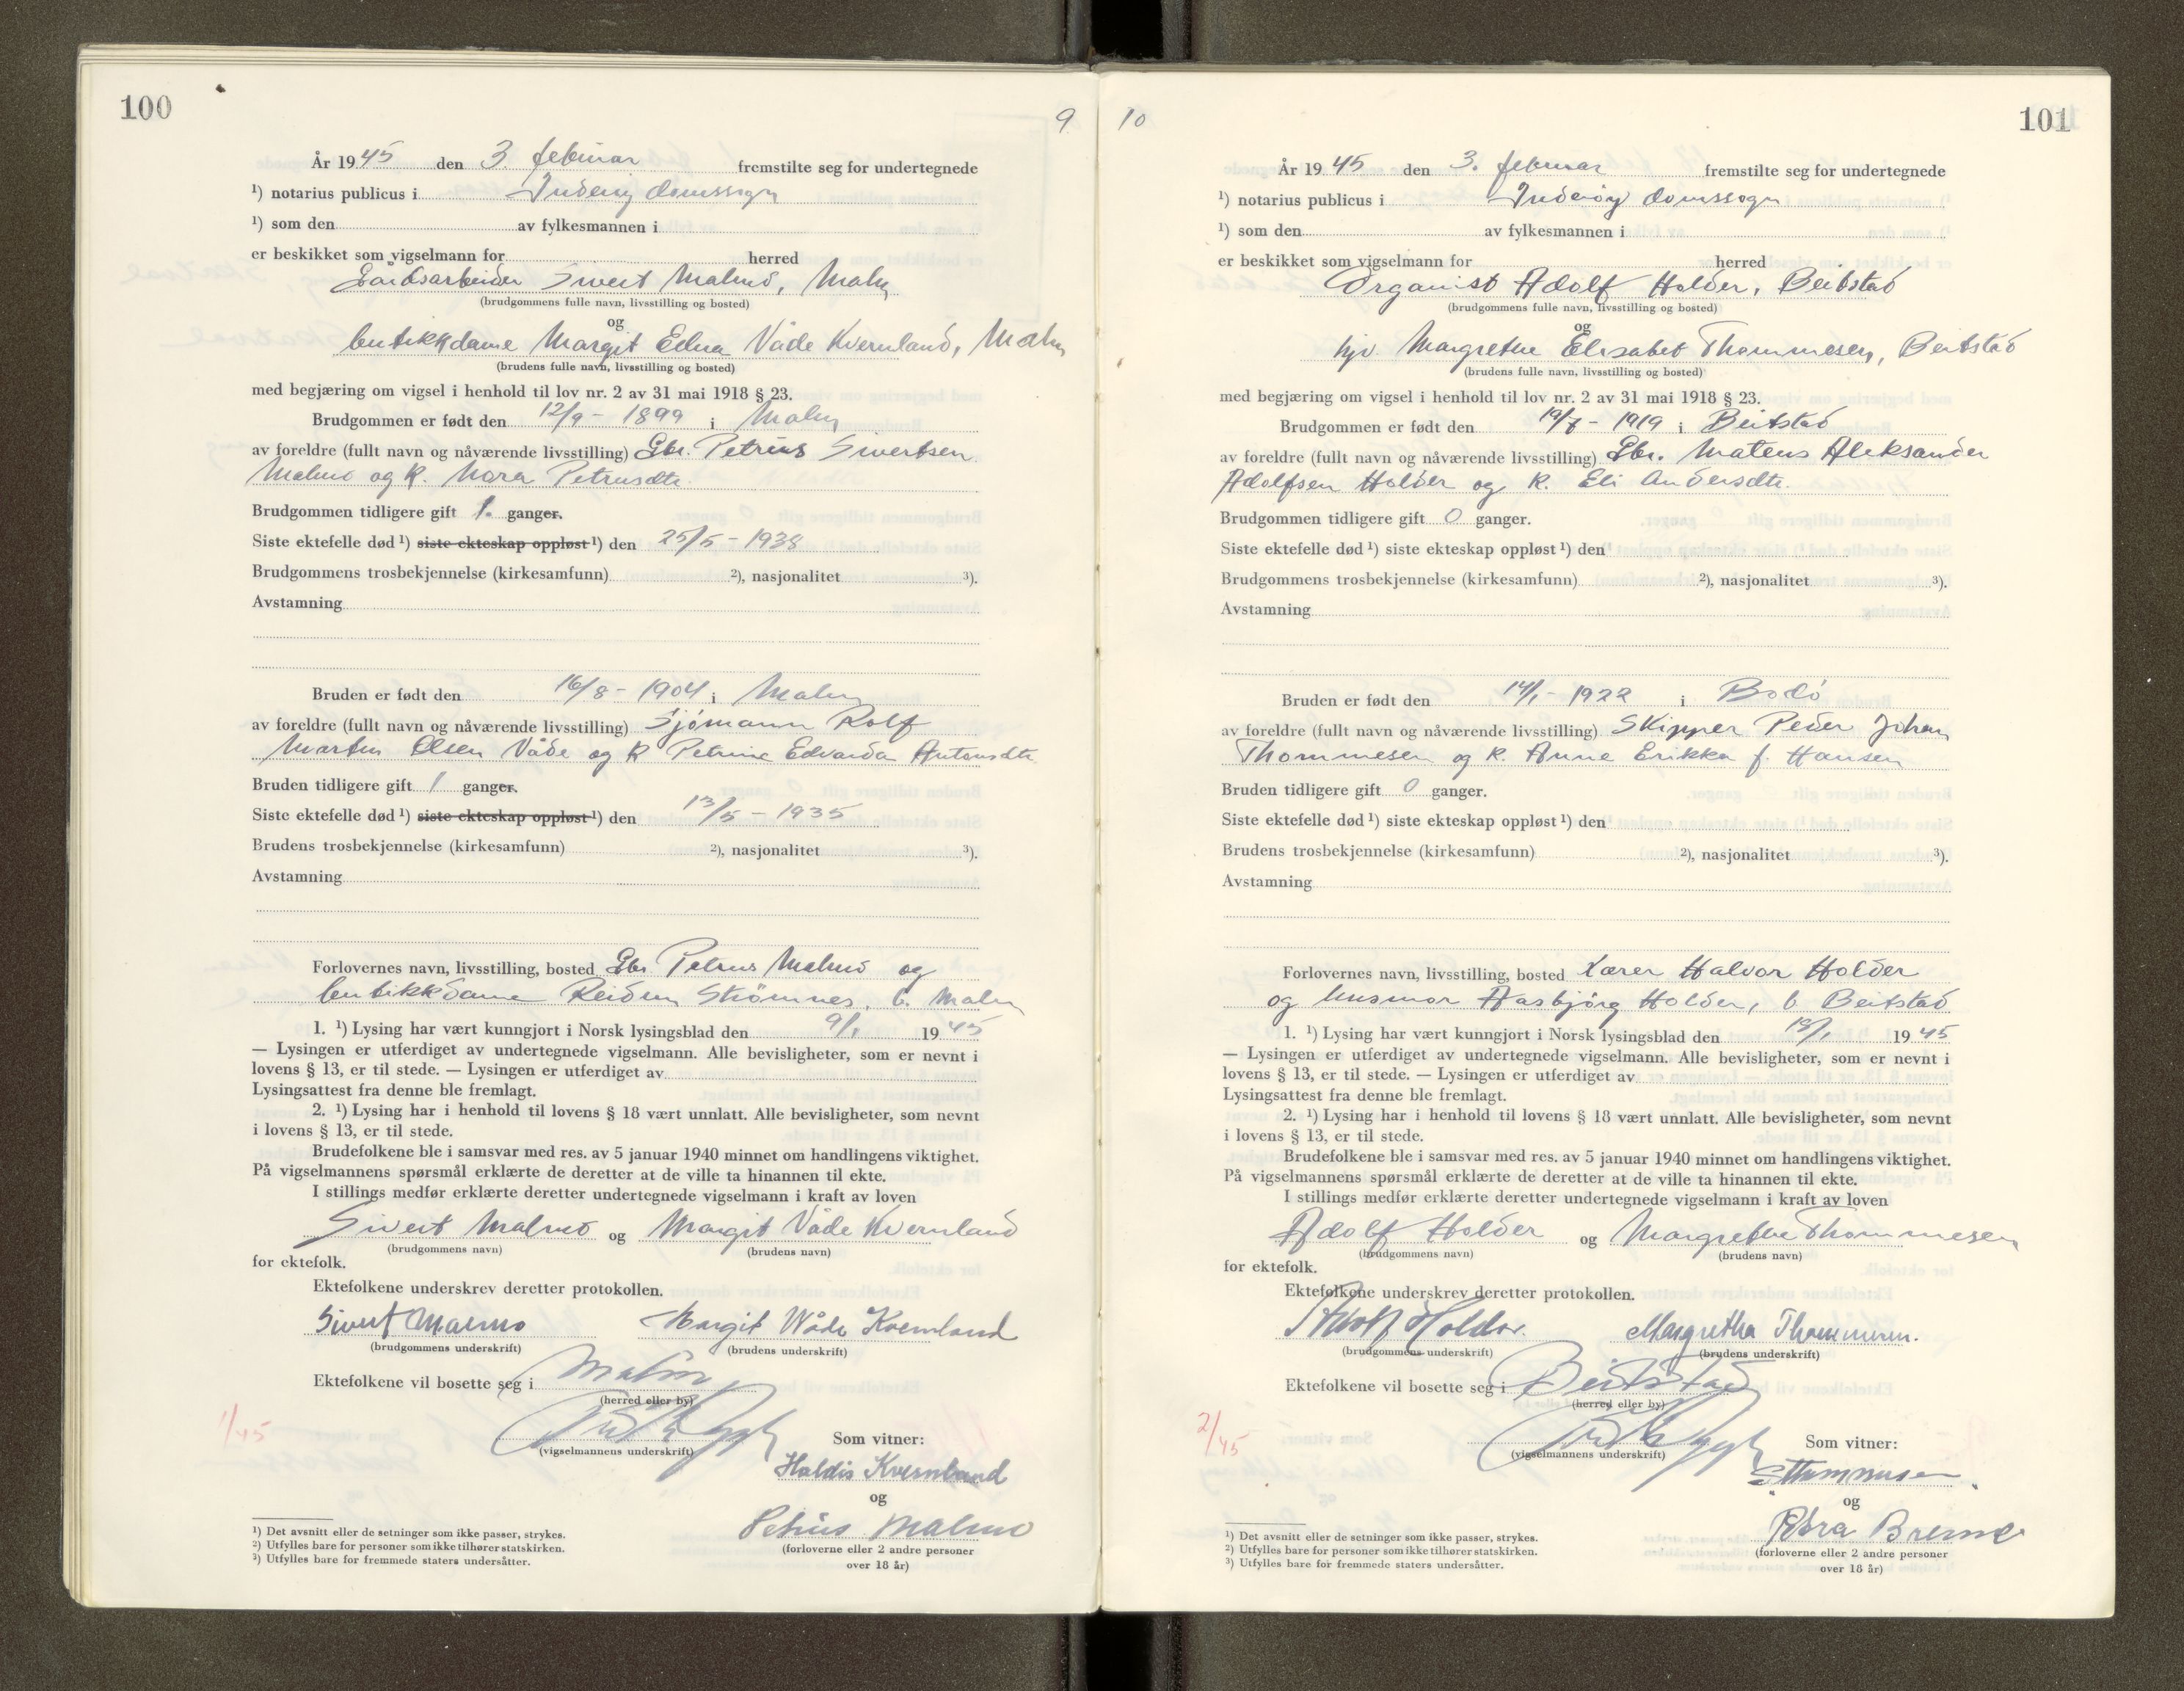 100
9
År 1945 den 3. februar fremstilte seg for undertegnede
¹) notarius publicus i Inderøy domssogn
¹) som den av fylkesmannen i
er beskikket som vigselmann for herred
Gårdsarbeider Sivert Malmo, Malm
(brudgommens fulle navn, livsstilling og bosted)
og
butikkdame Margit Edna Våde Kvernland, Malm
(brudens fulle navn, livsstilling og bosted)
med begjæring om vigsel i henhold til lov nr. 2 av 31 mai 1918 § 23.
Brudgommen er født den 12/9 - 1899 i Malm
av foreldre (fullt navn og nåværende livsstilling) Gbr. Petrus Sivertsen
Malmo og k. Nora Petrusdtr.
Brudgommen tidligere gift 1. ganger.
Siste ektefelle død ¹) siste ekteskap oppløst ¹) den 25/5 - 1938
Brudgommens trosbekjennelse (kirkesamfunn) ²), nasjonalitet ³).
Avstamning
Bruden er født den 16/8 - 1904 i Malm
av foreldre (fullt navn og nåværende livsstilling) Sjömann Rolf
Martin Olsen Våde og k Petrine Edvarda Antonsdtr
Bruden tidligere gift 1 ganger.
Siste ektefelle død ¹) siste ekteskap oppløst ¹) den 13/5 - 1935
Brudens trosbekjennelse (kirkesamfunn) ²), nasjonalitet ³).
Avstamning
Forlovernes navn, livsstilling, bosted Gbr Petrus Malmo og
butikkdame Reidun Strömnes, b. Malm
1. ¹) Lysing har vært kunngjort i Norsk lysingsblad den 9/1 1945
— Lysingen er utferdiget av undertegnede vigselmann. Alle bevisligheter, som er nevnt i
lovens § 13, er til stede. — Lysingen er utferdiget av
Lysingsattest fra denne ble fremlagt.
2. ¹) Lysing har i henhold til lovens § 18 vært unnlatt. Alle bevisligheter, som nevnt
i lovens § 13, er til stede.
Brudefolkene ble i samsvar med res. av 5 januar 1940 minnet om handlingens viktighet.
På vigselmannens spørsmål erklærte de deretter at de ville ta hinannen til ekte.
I stillings medfør erklærte deretter undertegnede vigselmann i kraft av loven
Sivert Malmo og Margit Våde Kvernland
(brudgommens navn) (brudens navn)
for ektefolk.
Ektefolkene underskrev deretter protokollen.
Sivert Malmo Margit Wåde Kvernland
(brudgommens underskrift) (brudens underskrift)
Ektefolkene vil bosette seg i Malm
(herred eller by)
1/45
(vigselmannens underskrift)
Som vitner:
Haldis Kvernland
og
Petrus Malmo
(forloverne eller 2 andre personer
over 18 år)
¹) Det avsnitt eller de setninger som ikke passer, strykes.
²) Utfylles bare for personer som ikke tilhører statskirken.
³) Utfylles bare for fremmede staters undersåtter.
10
101
År 1945 den 3. februar fremstilte seg for undertegnede
¹) notarius publicus i Inderøy domssogn
¹) som den av fylkesmannen i
er beskikket som vigselmann for herred
Organist Adolf Holder, Beitstad
(brudgommens fulle navn, livsstilling og bosted)
og
hjv. Margrethe Elisabet Thommesen, Beitstad
(brudens fulle navn, livsstilling og bosted)
med begjæring om vigsel i henhold til lov nr. 2 av 31 mai 1918 § 23.
Brudgommen er født den 19/7 - 1919 i Beitstad
av foreldre (fullt navn og nåværende livsstilling) Gbr. Mateus Aleksander
Adolfsen Holder og k. Eli Andersdtr.
Brudgommen tidligere gift 0 ganger.
Siste ektefelle død ¹) siste ekteskap oppløst ¹) den
Brudgommens trosbekjennelse (kirkesamfunn) ²), nasjonalitet ³).
Avstamning
Bruden er født den 14/1 - 1922 i Bodö
av foreldre (fullt navn og nåværende livsstilling) Skipper Peder Johan
Thommesen og k. Anne Erikka f. Hansen
Bruden tidligere gift 0 ganger.
Siste ektefelle død ¹) siste ekteskap oppløst ¹) den
Brudens trosbekjennelse (kirkesamfunn) ²), nasjonalitet ³).
Avstamning
Forlovernes navn, livsstilling, bosted Lærer Halvor Holder
og husmor Aasbjörg Holder, b Beitstad
1. ¹) Lysing har vært kunngjort i Norsk lysingsblad den 1945
— Lysingen er utferdiget av undertegnede vigselmann. Alle bevisligheter, som er nevnt i
lovens § 13, er til stede. — Lysingen er utferdiget av
Lysingsattest fra denne ble fremlagt.
2. ¹) Lysing har i henhold til lovens § 18 vært unnlatt. Alle bevisligheter, som nevnt
i lovens § 13, er til stede.
Brudefolkene ble i samsvar med res. av 5 januar 1940 minnet om handlingens viktighet.
På vigselmannens spørsmål erklærte de deretter at de ville ta hinannen til ekte.
I stillings medfør erklærte deretter undertegnede vigselmann i kraft av loven
Adolf Holder og Margrethe Thommesen
(brudgommens navn) (brudens navn)
for ektefolk.
Ektefolkene underskrev deretter protokollen.
Adolf Holder. Margretha Thommesen.
(brudgommens underskrift) (brudens underskrift)
Ektefolkene vil bosette seg i Beitstad
(herred eller by)
2/45
(vigselmannens underskrift)
Som vitner:
Thommesen
og
(forloverne eller 2 andre personer
over 18 år)
¹) Det avsnitt eller de setninger som ikke passer, strykes.
²) Utfylles bare for personer som ikke tilhører statskirken.
³) Utfylles bare for fremmede staters undersåtter.